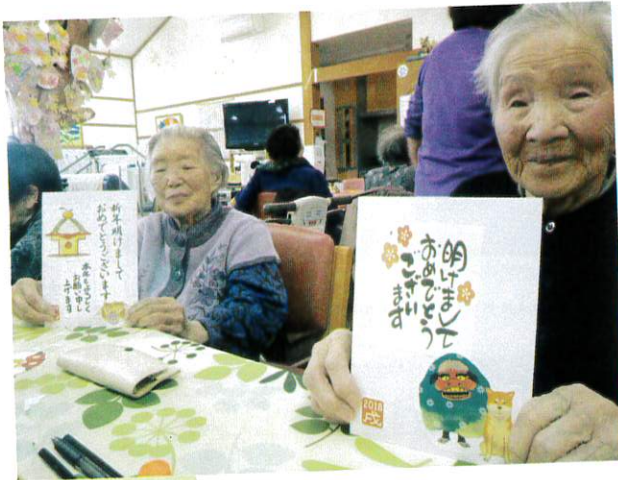 新年明けまして
おめでとうございます
本年もよろしく
お願い申し
上げます
明けまして
おめでとう
ござい
ます
2018
戌